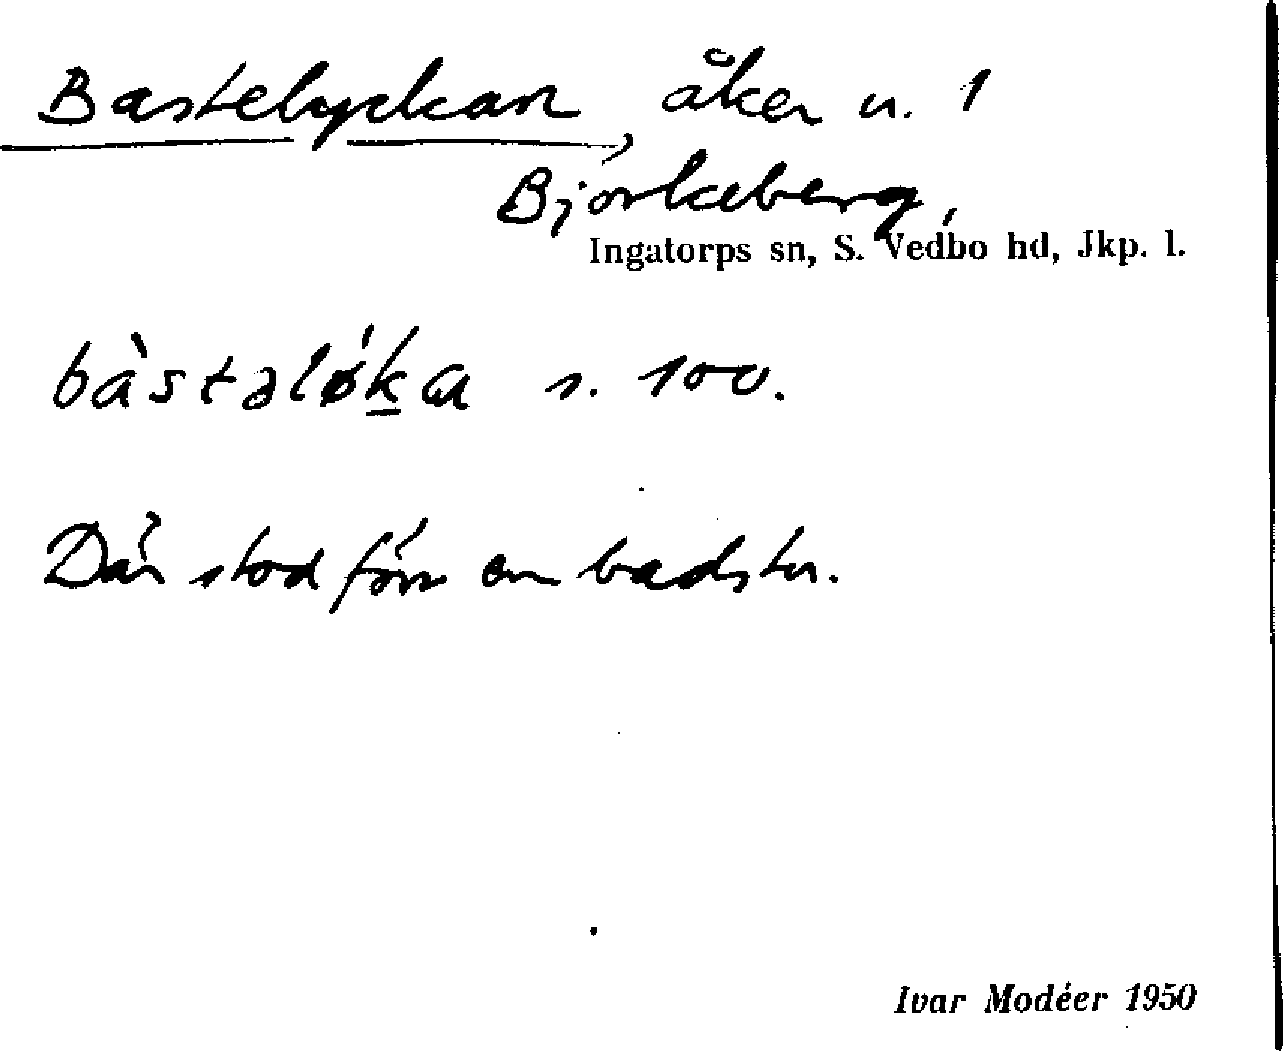 Bastelyckan, åker u. 1
Björkeberg,
Ingatorps sn, S. Vedbo hd, Jkp. l.
bàstəløḵa s. 100.
Där stod förr en badstu.
Ivar Modéer 1950